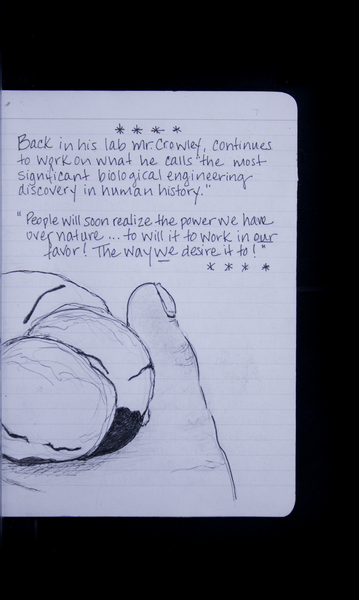 * * * *
Back in his lab Mr. Crowley, continues
to work on what he calls "the most
significant biological engineering
discovery in human history."
"People will soon realize the power we have
over nature... to will it to work in our
favor! The way we desire it to!"
* * * *